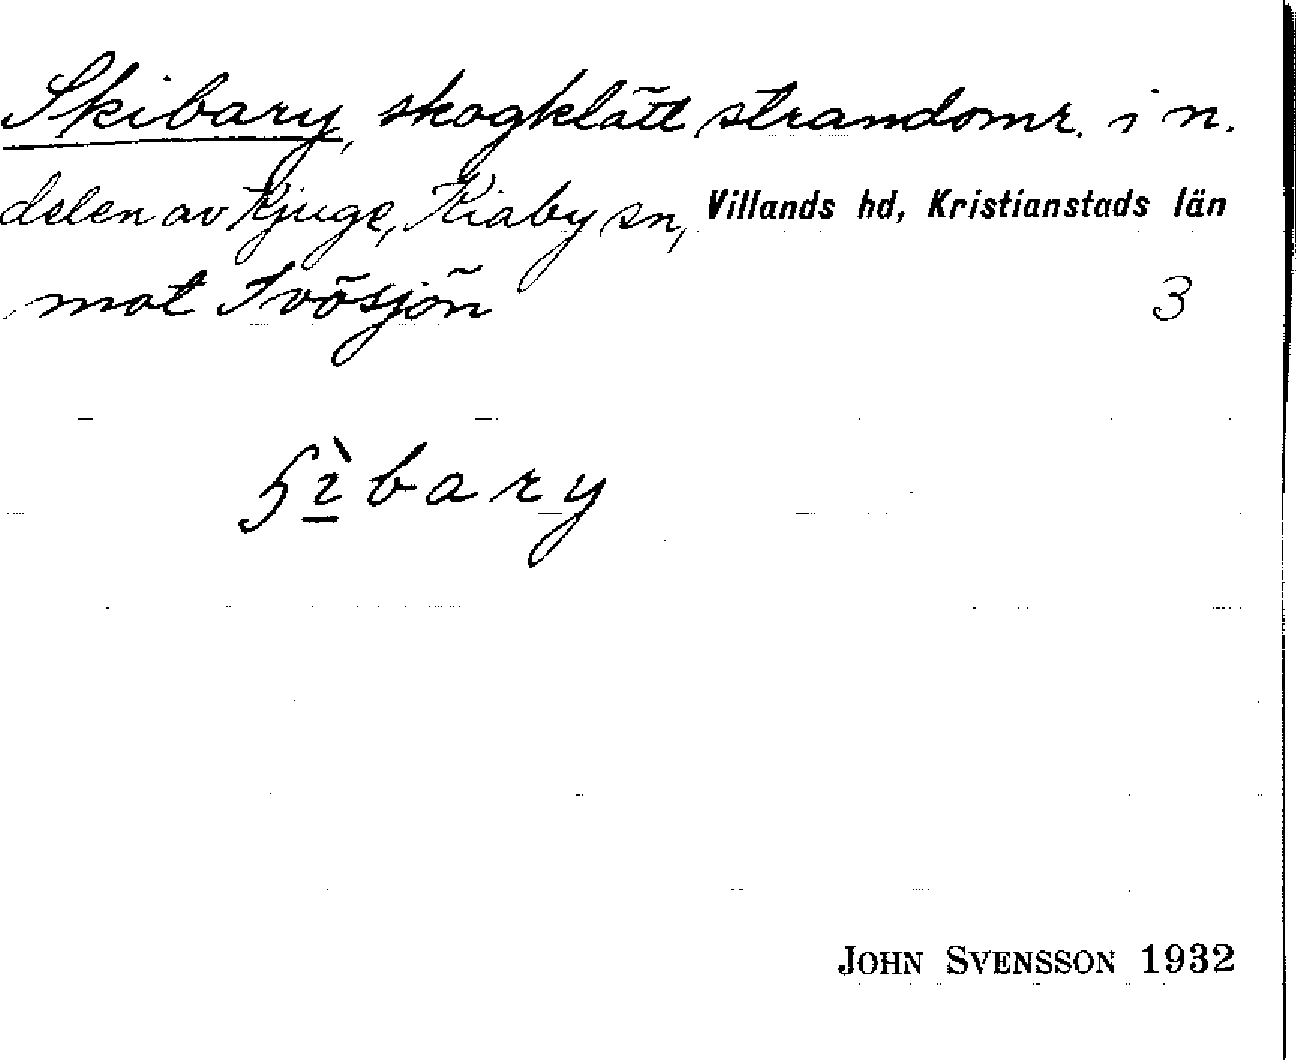 Skibary, skogklätt strandomr. i n.
delen av Kjuge, Kiaby sn, Villands hd, Kristianstads län
mot Ivösjön 3
ʃì̱bary
JOHN SVENSSON 1932